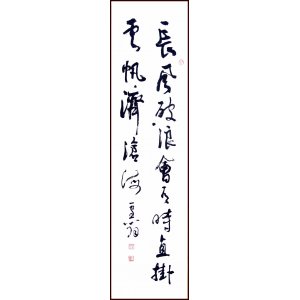 長風破浪會有時直掛
雲帆濟滄海